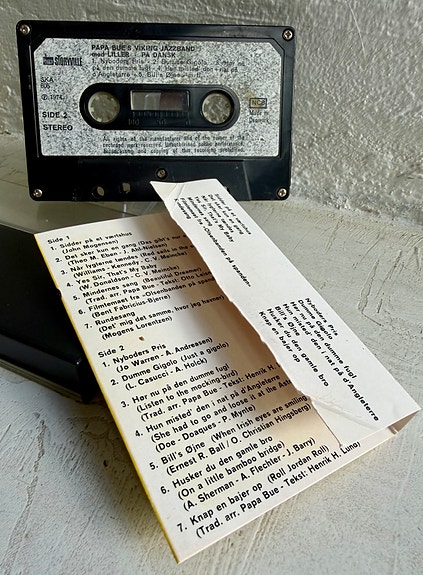 STORYVILLE
PAPA BUE'S VIKING JAZZBAND
med LILLER PÅ DANSK
1. Nyboders Pris 2. Dumme Gigolo 3. Hør nu
på den dumme fugl 4. Hun misted' den i nat på
d'Angleterre 5. Bill's Øjne
SKA
805
Ⓟ 1974
SIDE 2
STEREO
NCB
Made in
Denmark
All rights of the manufacturer and of the owner of the
recorded work reserved. Unauthorised public performance,
broadcasting and copying of this recording prohibited.
Sidder på et værtshus
Det sker kun en gang
Når lygterne tændes
Yes Sir, That's My Baby
Mindernes sang
Filmtemaet fra »Olsenbanden på spanden«
Rundesang
Nyboders Pris
Dumme Gigolo
Hør nu på den dumme fugl
Hun misted' den i nat på d'Angleterre
Bill's Øjne
Husker du den gamle bro
Knap en bajer op
Side 1
1. Sidder på et værtshus
(John Mogensen)
2. Det sker kun en gang (Das gibt's nur
(Theo M. Eben - Ah.-Nielsen)
3. Når lygterne tændes (Red sails in the
(Williams - Kennedy - C. V. Meincke)
4. Yes Sir, That's My Baby
(W. Donaldson - C. V. Meincke)
5. Mindernes sang (Beautiful Dreamer)
(Trad. arr. Papa Bue - Tekst: Otto
6. Filmtemaet fra »Olsenbanden på spanden
(Bent Fabricius-Bjerre)
7. Rundesang
(Det' mig det samme, hvor jeg havner)
(Mogens Lorentzen)
Side 2
1. Nyboders Pris
(Jo Warren - A. Andreasen)
2. Dumme Gigolo (Just a gigolo)
(L. Casucci - A. Holck)
3. Hør nu på den dumme fugl
(Listen to the mocking-bird)
(Trad. arr. Papa Bue - Tekst: Henrik H.
4. Hun misted' den i nat på d'Angleterre
(She had to go and loose it at the Asto
(Doe - Doaques - P. Mynte)
5. Bill's Øjne (When Irish eyes are smiling
(Ernest R. Ball / O. Christian Ringsberg)
6. Husker du den gamle bro
(On a little bamboo bridge)
(A. Sherman - A. Flechter - J. Barry)
7. Knap en bajer op (Roll Jordan Roll)
(Trad. arr. Papa Bue - Tekst: Henrik H. Lund)